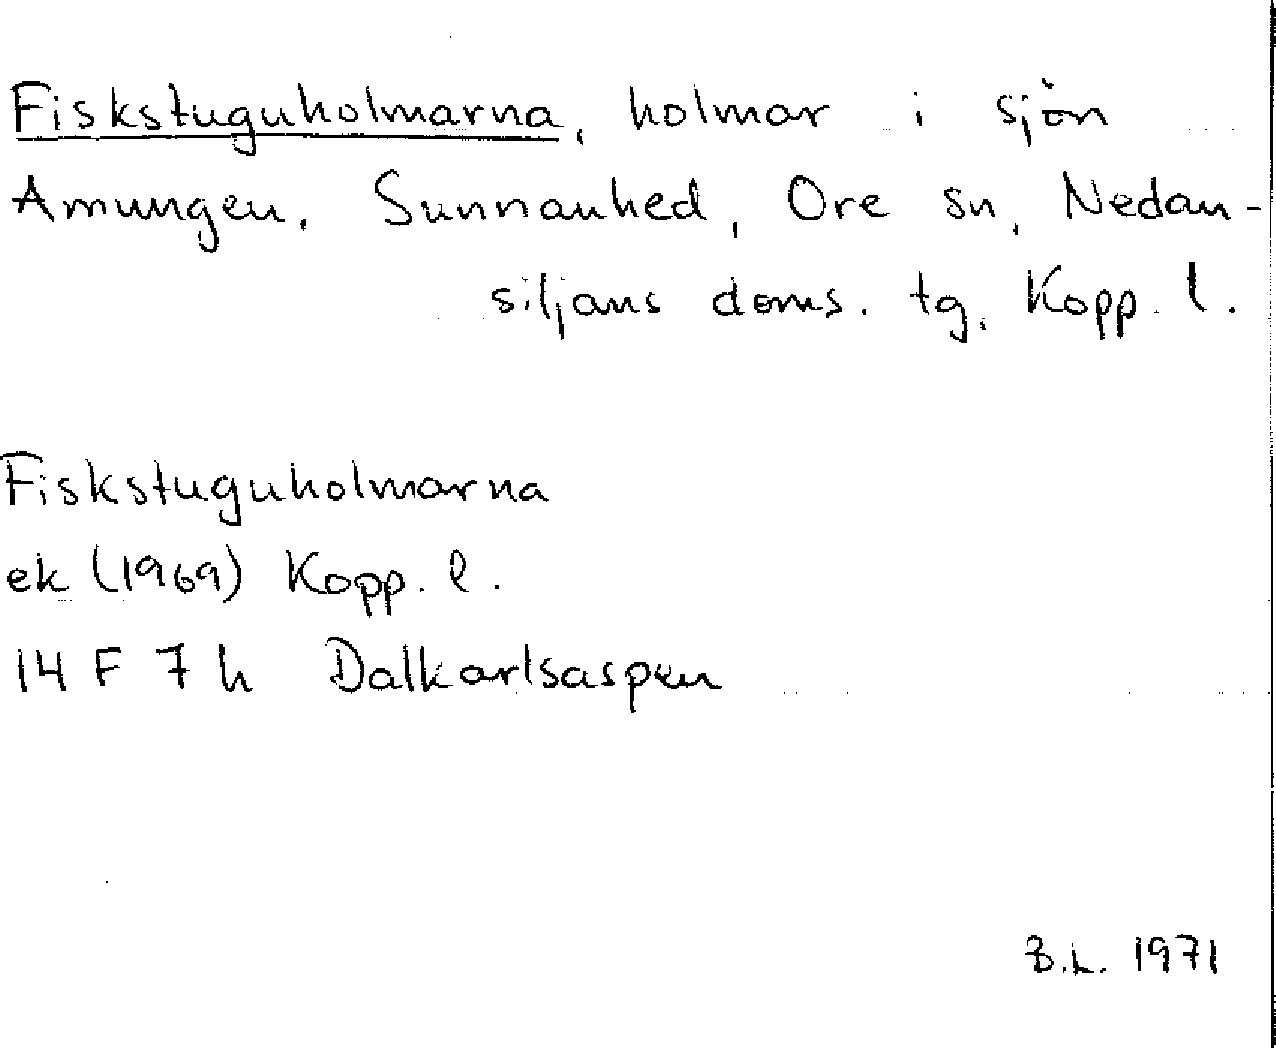 Fiskstuguholmarna, holmar i sjön
Amungen, Sunnanhed, Ore sn, Nedan-
siljans doms. tg, Kopp. l.
Fiskstuguholmarna
ek (1969) Kopp. l.
14 F 7 h Dalkarlsaspen
B.L. 1971